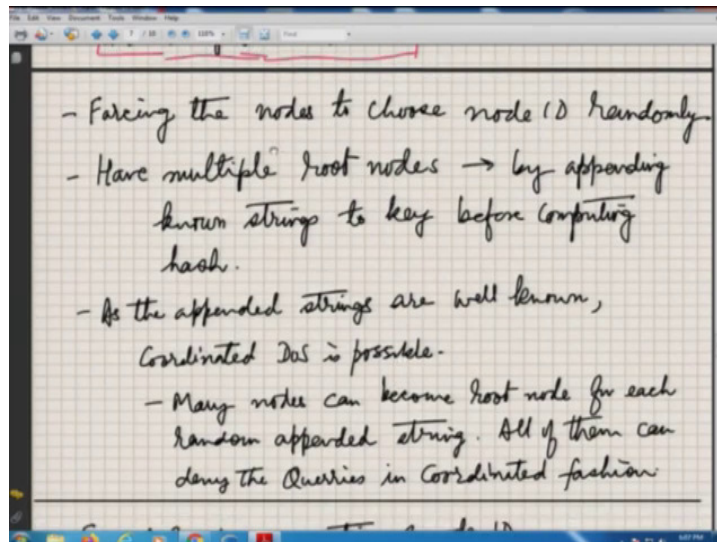 File Edit View Document Tools Window Help
7 / 10 110% Find
- Forcing the nodes to choose node ID randomly.
- Have multiple root nodes → by appending
known strings to key before computing
hash.
- As the appended strings are well known,
Coordinated DoS is possible.
- Many nodes can become root node for each
random appended string. All of them can
deny the Querries in Coordinated fashion.
5:07 PM